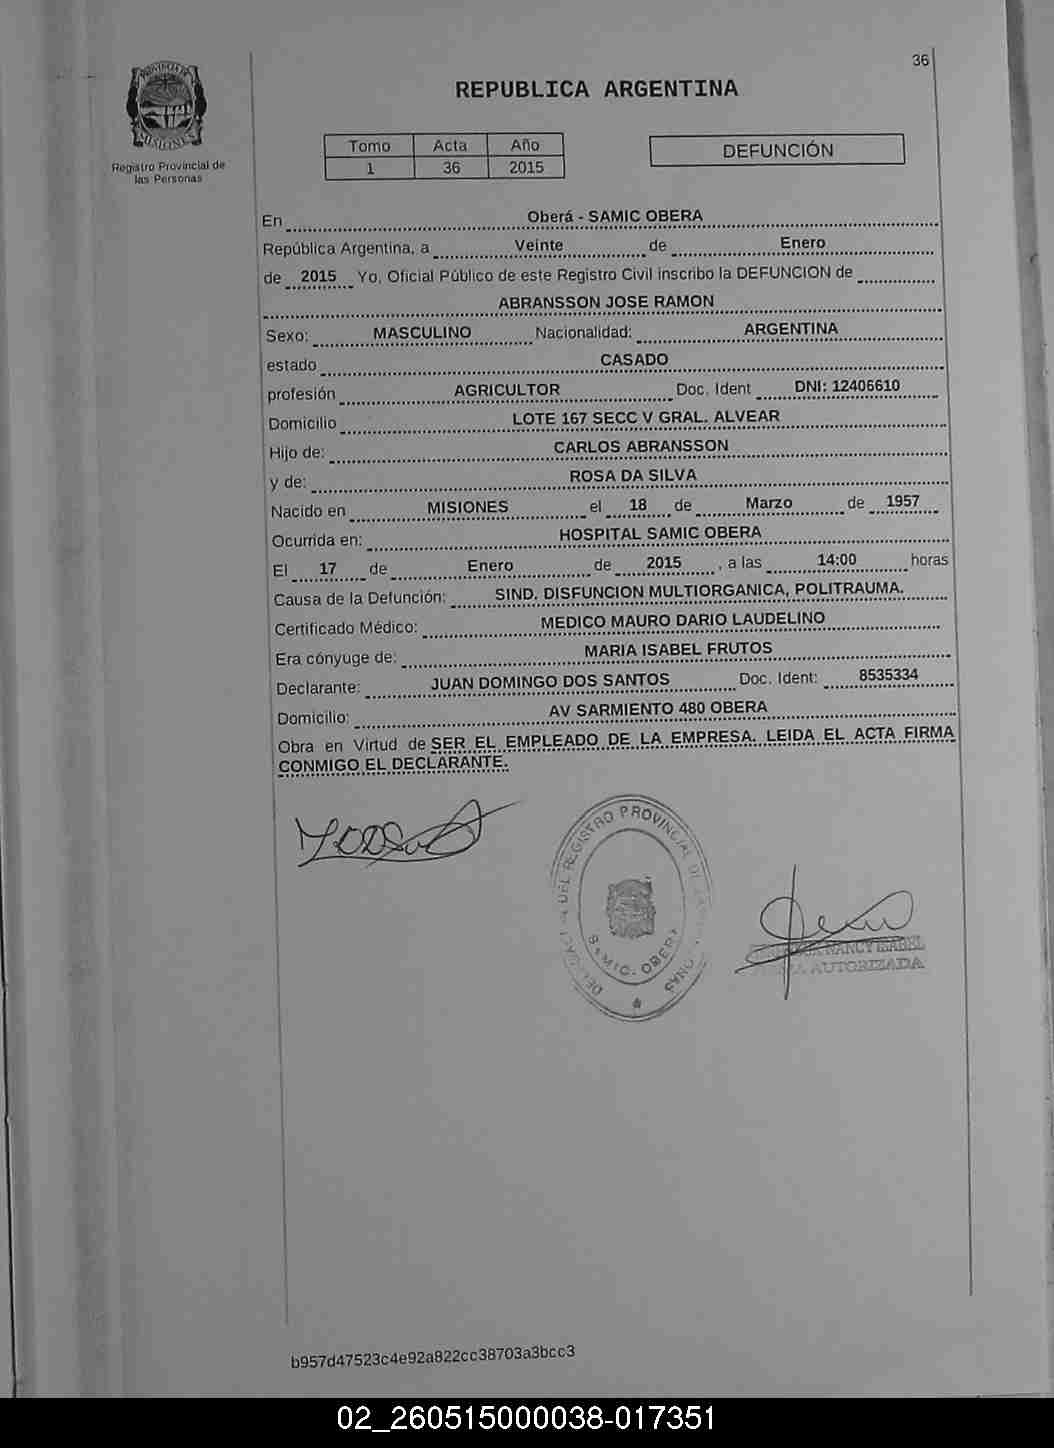 36
PROVINCIA DE
MISIONES
Registro Provincial de
las Personas
REPUBLICA ARGENTINA
Tomo Acta Año
1 36 2015
DEFUNCIÓN
En Oberá - SAMIC OBERA
República Argentina, a Veinte de Enero
de 2015 Yo, Oficial Público de este Registro Civil inscribo la DEFUNCION de
ABRANSSON JOSE RAMON
Sexo: MASCULINO Nacionalidad: ARGENTINA
estado CASADO
profesión AGRICULTOR Doc. Ident DNI: 12406610
Domicilio LOTE 167 SECC V GRAL. ALVEAR
Hijo de: CARLOS ABRANSSON
y de: ROSA DA SILVA
Nacido en MISIONES el 18 de Marzo de 1957
Ocurrida en: HOSPITAL SAMIC OBERA
El 17 de Enero de 2015 , a las 14:00 horas
Causa de la Defunción: SIND. DISFUNCION MULTIORGANICA, POLITRAUMA.
Certificado Médico: MEDICO MAURO DARIO LAUDELINO
Era cónyuge de: MARIA ISABEL FRUTOS
Declarante: JUAN DOMINGO DOS SANTOS Doc. Ident: 8535334
Domicilio: AV SARMIENTO 480 OBERA
Obra en Virtud de SER EL EMPLEADO DE LA EMPRESA. LEIDA EL ACTA FIRMA
CONMIGO EL DECLARANTE.
DEL REGISTRO PROVINCIAL DE
SAMIC. OBERA
NANCY ISABEL
AUTORIZADA
b957d47523c4e92a822cc38703a3bcc3
02_260515000038-017351